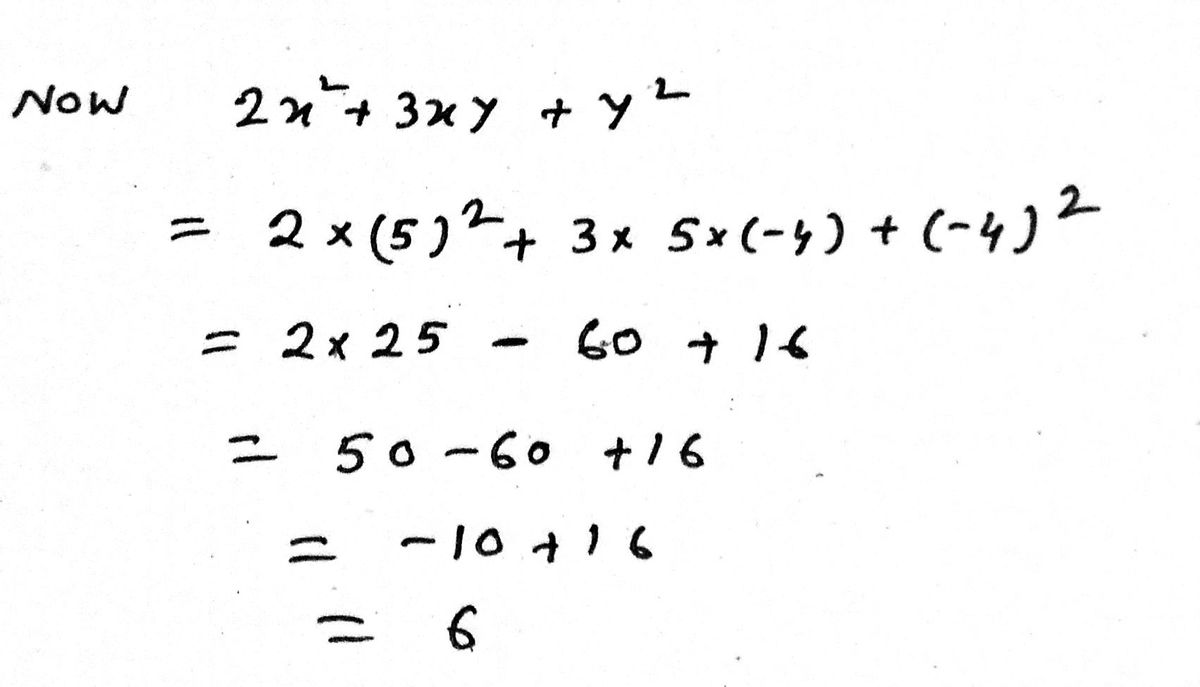 Now 2x² + 3xy + y²
= 2 × (5)² + 3 × 5 × (-4) + (-4)²
= 2 × 25 - 60 + 16
= 50 - 60 + 16
= -10 + 16
= 6